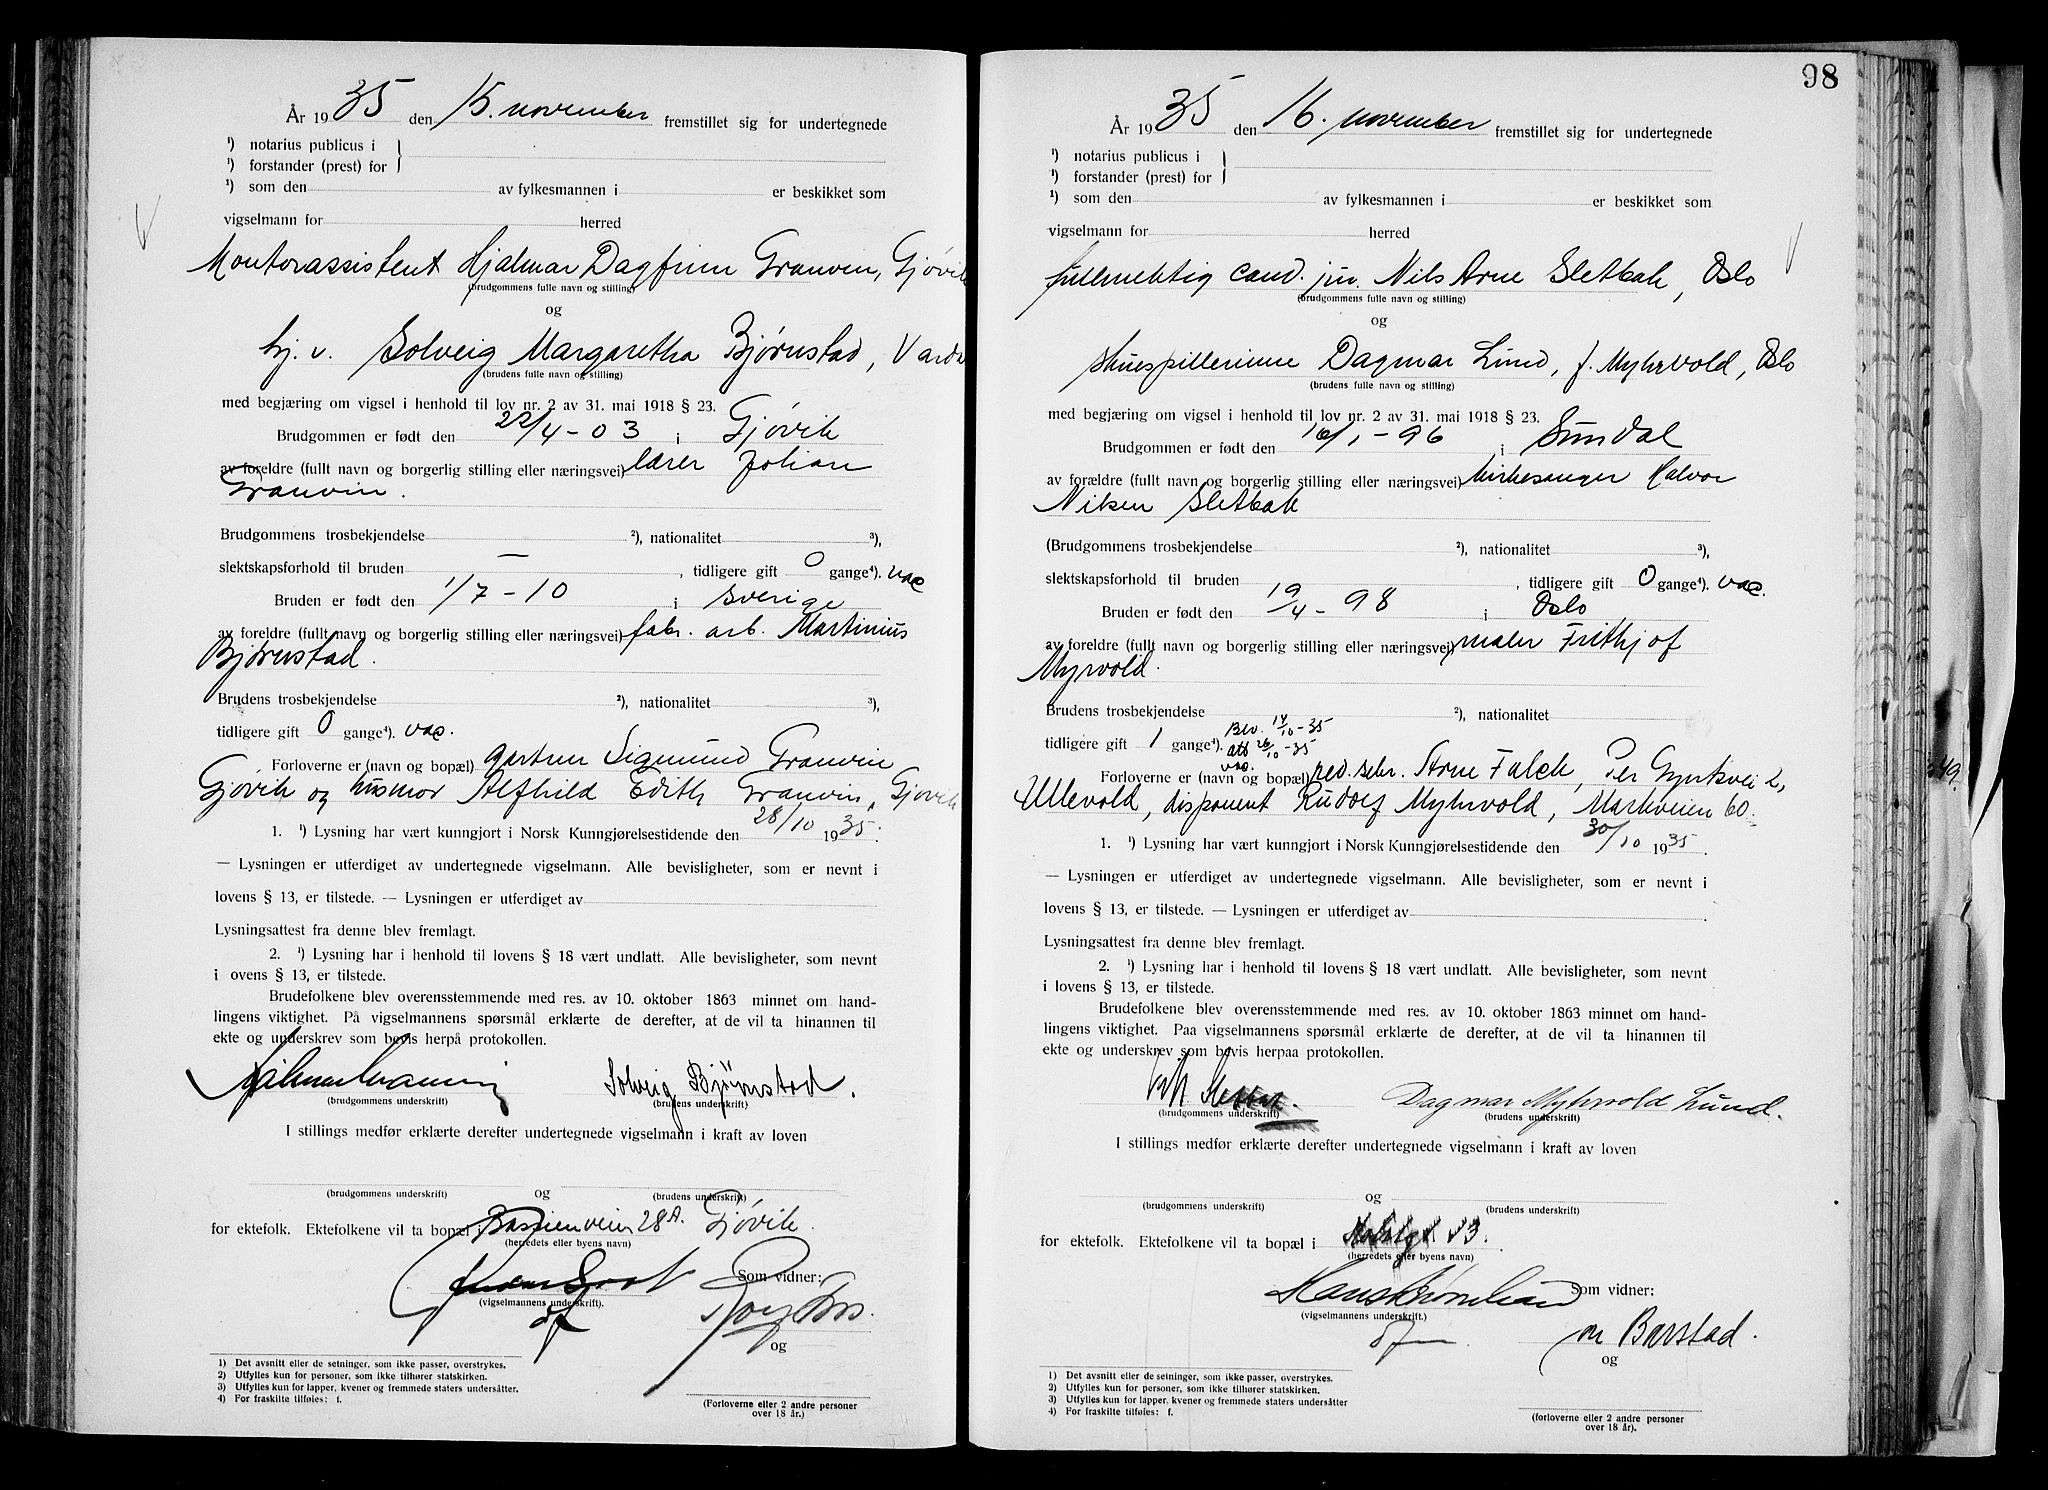 År 1935 den 15. november fremstillet sig for undertegnede
¹) notarius publicus i
¹) forstander (prest) for
¹) som den av fylkesmannen i er beskikket som
vigselmann for herred
Kontorassistent Hjalmar Dagfinn Granvin, Gjøvik
(brudgommens fulle navn og stilling)
og
hj. v. Solveig Margaretha Bjørnstad, Vardal
(brudens fulle navn og stilling)
med begjæring om vigsel i henhold til lov nr. 2 av 31. mai 1918 § 23.
Brudgommen er født den 22/4-03 i Gjøvik
av foreldre (fullt navn og borgerlig stilling eller næringsvei) lærer Johan
Granvin.
Brudgommens trosbekjendelse ²), nationalitet ³),
slektskapsforhold til bruden — , tidligere gift 0 gange⁴). vac
Bruden er født den 1/7-10 i Sverige
av foreldre (fullt navn og borgerlig stilling eller næringsvei) fabr. arb. Martinius
Bjørnstad.
Brudens trosbekjendelse ²), nationalitet ³),
tidligere gift 0 gange⁴). vac.
Forloverne er (navn og bopæl) gartner Sigmund Granvin
Gjøvik og husmor Alfhild Edith Granvin, Gjøvik
1. ¹) Lysning har vært kunngjort i Norsk Kunngjørelsestidende den 28/10 1935.
— Lysningen er utferdiget av undertegnede vigselmann. Alle bevisligheter, som er nevnt i
lovens § 13, er tilstede. — Lysningen er utferdiget av
Lysningsattest fra denne blev fremlagt.
2. ¹) Lysning har i henhold til lovens § 18 vært undlatt. Alle bevisligheter, som nevnt
i ovens § 13, er tilstede.
Brudefolkene blev overensstemmende med res. av 10. oktober 1863 minnet om hand-
lingens viktighet. På vigselmannens spørsmål erklærte de derefter, at de vil ta hinannen til
ekte og underskrev som bevis herpå protokollen.
Hjalmar Granvin Solveig Bjørnstad.
(brudgommens underskrift) (brudens underskrift)
I stillings medfør erklærte derefter undertegnede vigselmann i kraft av loven
og
(brudgommens underskrift) (brudens underskrift)
for ektefolk. Ektefolkene vil ta bopæl i 28A. Gjøvik.
(herredets eller byens navn)
Som vidner:
(vigselmannens underskrift).
og
1) Det avsnitt eller de setninger, som ikke passer, overstrykes.
2) Utfylles kun for personer, som ikke tilhører statskirken.
3) Utfylles kun for lapper, kvener og fremmede staters undersåtter.
4) For fraskilte tilføies: f.
(Forloverne eller 2 andre personer
over 18 år.)
98
År 1935 den 16. november fremstillet sig for undertegnede
¹) notarius publicus i
¹) forstander (prest) for
¹) som den av fylkesmannen i er beskikket som
vigselmann for herred
fullmektig cand. jur. Nils Arne Sletbak, Oslo
(brudgommens fulle navn og stilling)
og
skuespillerinne Dagmar Lund, f. Myhrvold, Oslo
(brudens fulle navn og stilling)
med begjæring om vigsel i henhold til lov nr. 2 av 31. mai 1918 § 23.
Brudgommen er født den 16/1-96 i Sundal
av forældre (fullt navn og borgerlig stilling eller næringsvei) kirkesanger Halvor
Nilsen Sletbak
(Brudgommens trosbekjendelse ²), nationalitet ³),
slektskapsforhold til bruden , tidligere gift 0 gange⁴). vac.
Bruden er født den 19/4-98 i Oslo
av foreldre (fullt navn og borgerlig stilling eller næringsvei) maler Frithjof
Myrvold.
Brudens trosbekjendelse ²), nationalitet ³),
tidligere gift 1 gange⁴). Bev. 14/10-35
att 26/10-35
vac.
Forloverne er (navn og bopæl) red. sekr. Arne Falck, Per Gyntsvei 2,
Ullevold, disponent Rudolf Myhrvold, Markveien 60.
1. ¹) Lysning har vært kunngjort i Norsk Kunngjørelsestidende den 30/10 1935.
— Lysningen er utferdiget av undertegnede vigselmann. Alle bevisligheter, som er nevnt i
lovens § 13, er tilstede. — Lysningen er utferdiget av
Lysningsattest fra denne blev fremlagt.
2. ¹) Lysning har i henhold til lovens § 18 vært undlatt. Alle bevisligheter, som nevnt
i lovens § 13, er tilstede.
Brudefolkene blev overensstemmende med res. av 10. oktober 1863 minnet om hand-
lingens viktighet. Paa vigselmannens spørsmål erklærte de derefter, at de vil ta hinannen til
ekte og underskrev som bevis herpaa protokollen.
Sletbak. Dagmar Myhrvold Lund.
(brudgommens underskrift) (brudens underskrift)
I stillings medfør erklærte derefter undertegnede vigselmann i kraft av loven
og
(brudgommens underskrift) (brudens underskrift)
for ektefolk. Ektefolkene vil ta bopæl i
(herredets eller byens navn)
Som vidner:
(vigselmannens underskrift.)
Barstad.
og
1) Det avsnitt eller de setninger, som ikke passer, overstrykes.
2) Utfylles kun for personer, som ikke tilhører statskirken.
3) Utfylles kun for lapper, kvener og fremmede staters undersåtter
4) For fraskilte tilføies: f.
(forloverne eller 2 andre personer
over 18 år).